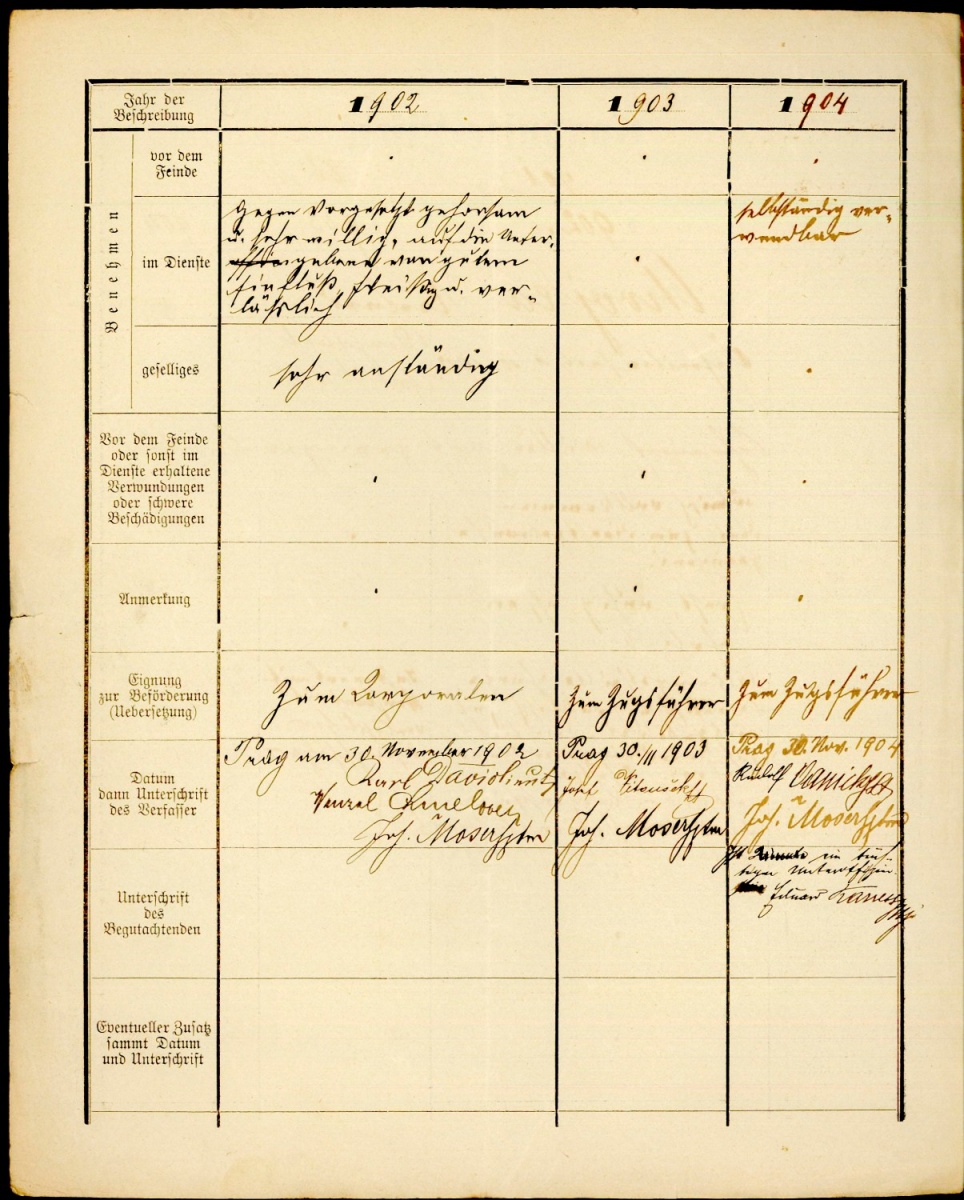 Jahr der
Beschreibung
1902
1903
1904
Benehmen
vor dem
Feinde
im Dienste
gegen Vorgesetzte gehorsam
u. sehr willig, auf die Unter-
gebene von gutem
Einfluß, fleißig u. ver-
läßlich
selbständig ver-
wendbar
geselliges
sehr anständig
Vor dem Feinde
oder sonst im
Dienste erhaltene
Verwundungen
oder schwere
Beschädigungen
Anmerkung
Eignung
zur Beförderung
(Uebersetzung)
Zum Corporalen
Zum Zugsführer
Zum Zugsführer
Datum
dann Unterschrift
des Verfasser
Prag am 30. November 1902
Karl David
Wenzel
Joh. Moser Hptm
Prag 30./11 1903
Josef
Joh. Moser Hptm
Prag 30. Nov. 1904
Rudolf
Joh. Moser Hptm
Unterschrift
des
Begutachtenden
ein tüch-
tiger Unteroffizier
Eduard
Eventueller Zusatz
sammt Datum
und Unterschrift